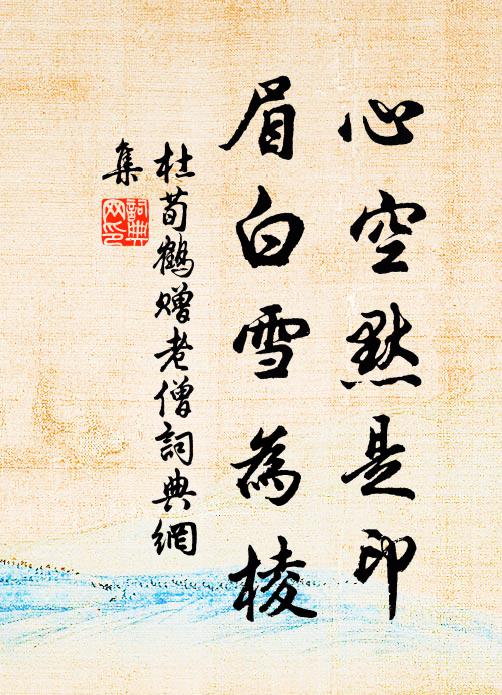 心空默是印
眉白雪為棱
杜荀鶴贈老僧詞典網
集
詞典
网印